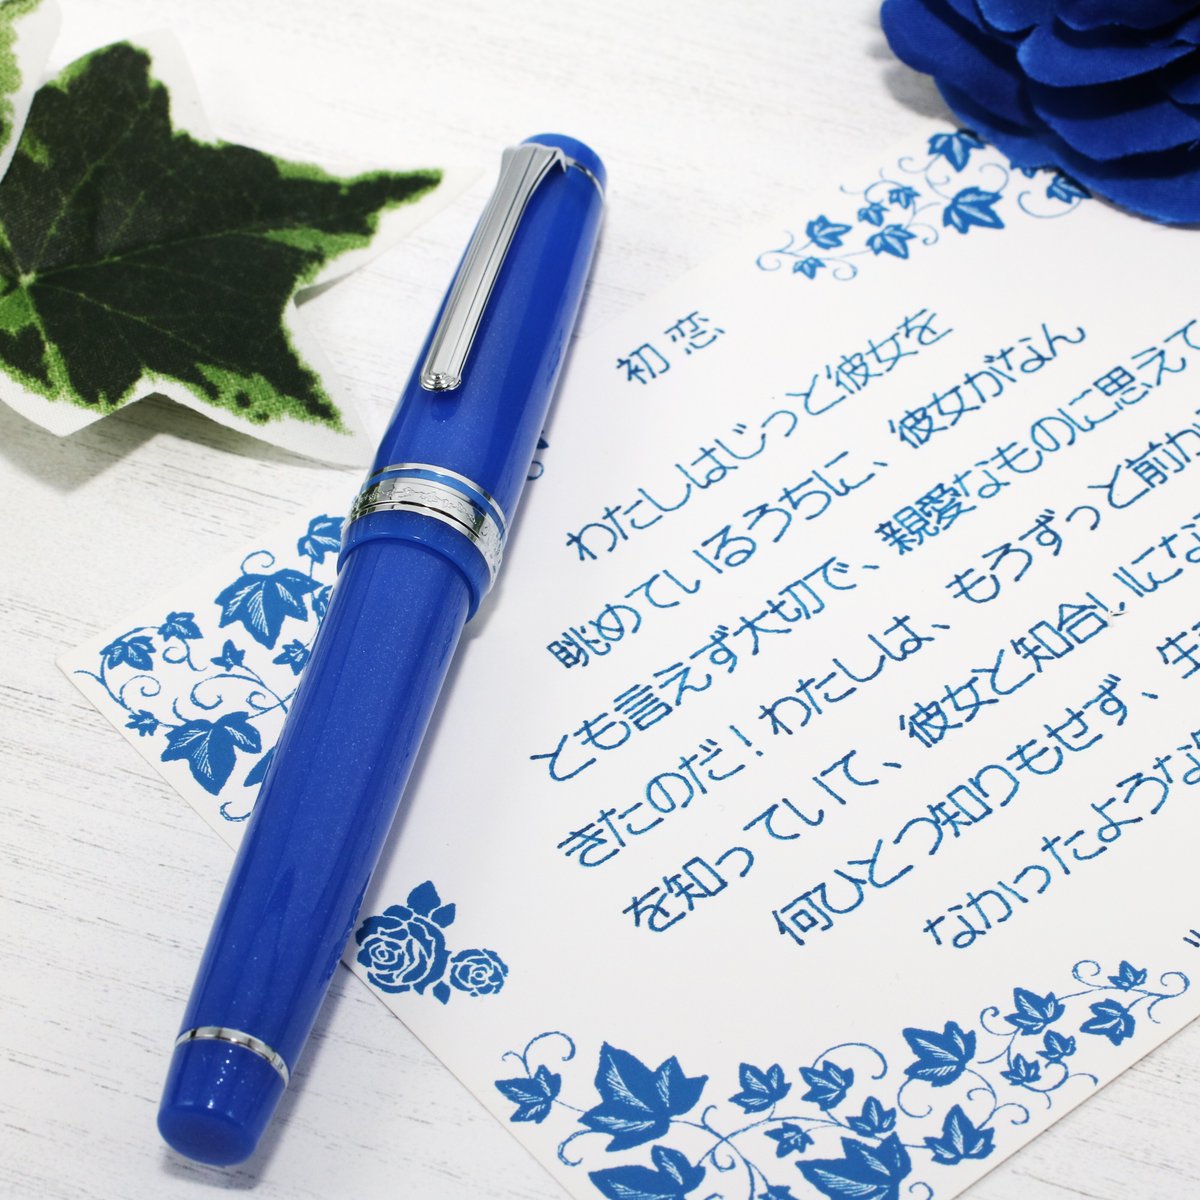 初恋
わたしはじっと彼女を
眺めているうちに、彼女がなん
とも言えず大切で、親愛なものに思えて
きたのだ！わたしは、もうずっと前か
を知っていて、彼女と知合いにな
何ひとつ知りもせず、生
なかったような